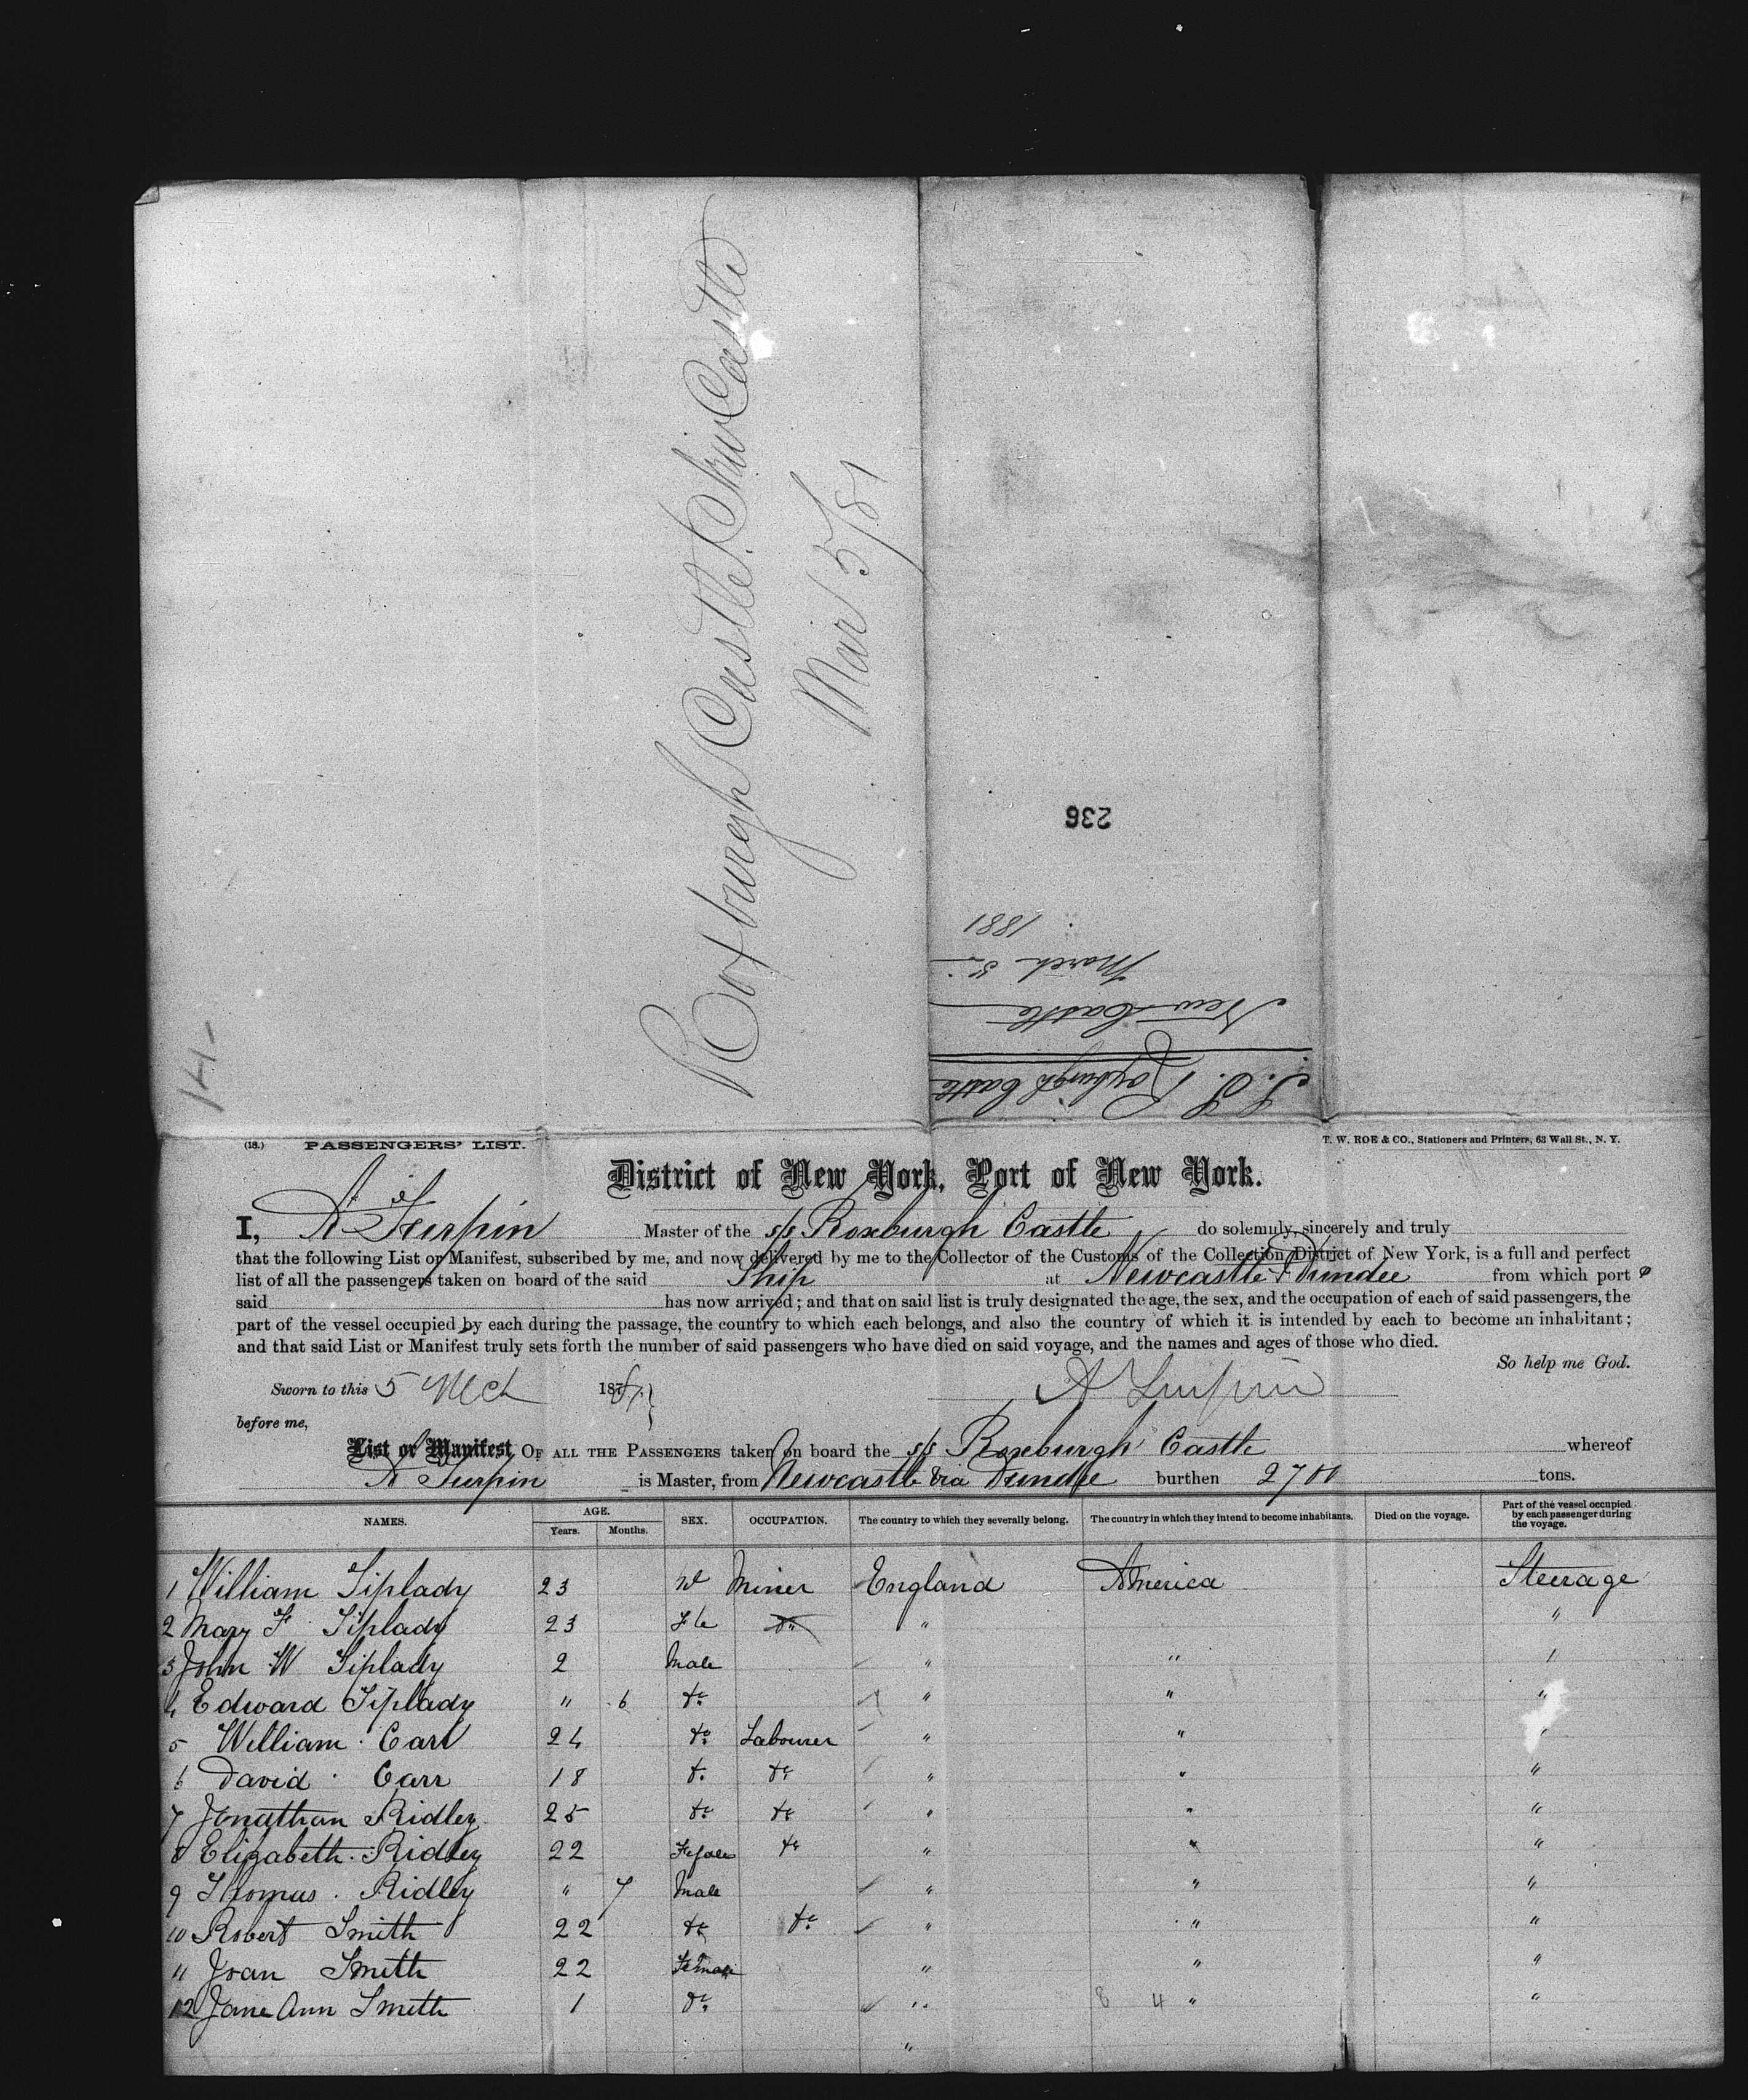 Roxburgh Castle New Castle
Mar 5/81
236
S.S. Roxburgh Castle
New Castle
March 5
1881
14-
(18.) PASSENGERS' LIST.
T. W. ROE & CO., Stationers and Printers, 63 Wall St., N. Y.
District of New York, Port of New York.
I, A Turpin Master of the s/s Roxburgh Castle do solemnly, sincerely and truly
that the following List or Manifest, subscribed by me, and now delivered by me to the Collector of the Customs of the Collection District of New York, is a full and perfect
list of all the passengers taken on board of the said Ship at Newcastle & Dundee from which port
said has now arrived; and that on said list is truly designated the age, the sex, and the occupation of each of said passengers, the
part of the vessel occupied by each during the passage, the country to which each belongs, and also the country of which it is intended by each to become an inhabitant;
and that said List or Manifest truly sets forth the number of said passengers who have died on said voyage, and the names and ages of those who died.
So help me God.
Sworn to this 5 Mch 1881 A Turpin
before me,
List or Manifest OF ALL THE PASSENGERS taken on board the s/s Roxburgh Castle whereof
A Turpin is Master, from Newcastle via Dundee burthen 2700 tons.
NAMES. AGE. Years. Months. SEX. OCCUPATION. The country to which they severally belong. The country in which they intend to become inhabitants. Died on the voyage. Part of the vessel occupied by each passenger during the voyage.
1 William Tiplady 23 M Miner England America Steerage
2 Mary F Tiplady 23 Fle Do " "
3 John W Tiplady 2 Male " " "
4 Edward Tiplady " 6 do " " "
5 William Carr 24 do Labourer " " "
6 David Carr 18 do do " " "
7 Jonathan Ridley 25 do do " " "
8 Elizabeth Ridley 22 do " " "
9 Thomas Ridley " 7 Male " " "
10 Robert Smith 22 do do " " "
11 Joan Smith 22 Female " " "
12 Jane Ann Smith 1 do " 8 4 " "
"